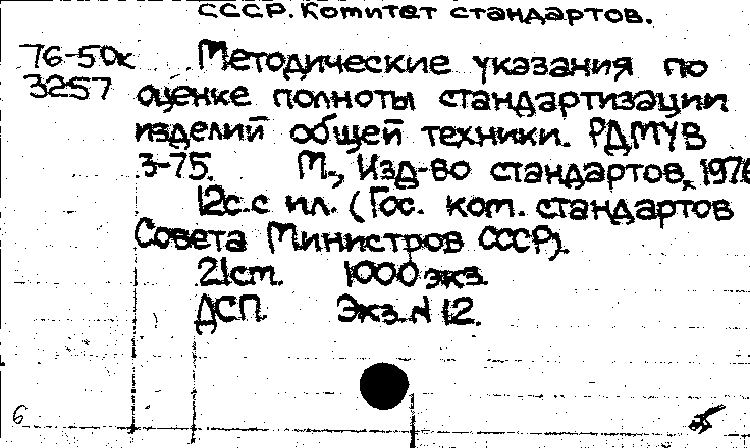 СССР. Комитет стандартов.
76-50к Методические указания по
3257 оценке полноты стандартизации
изделий общей техники. РДМУВ
3-75. М., Изд-во стандартов, 1976
12с. с ил. (Гос. ком. стандартов
Совета Министров СССР).
21см. 1000 экз.
ДСП. Экз. N 12.
6